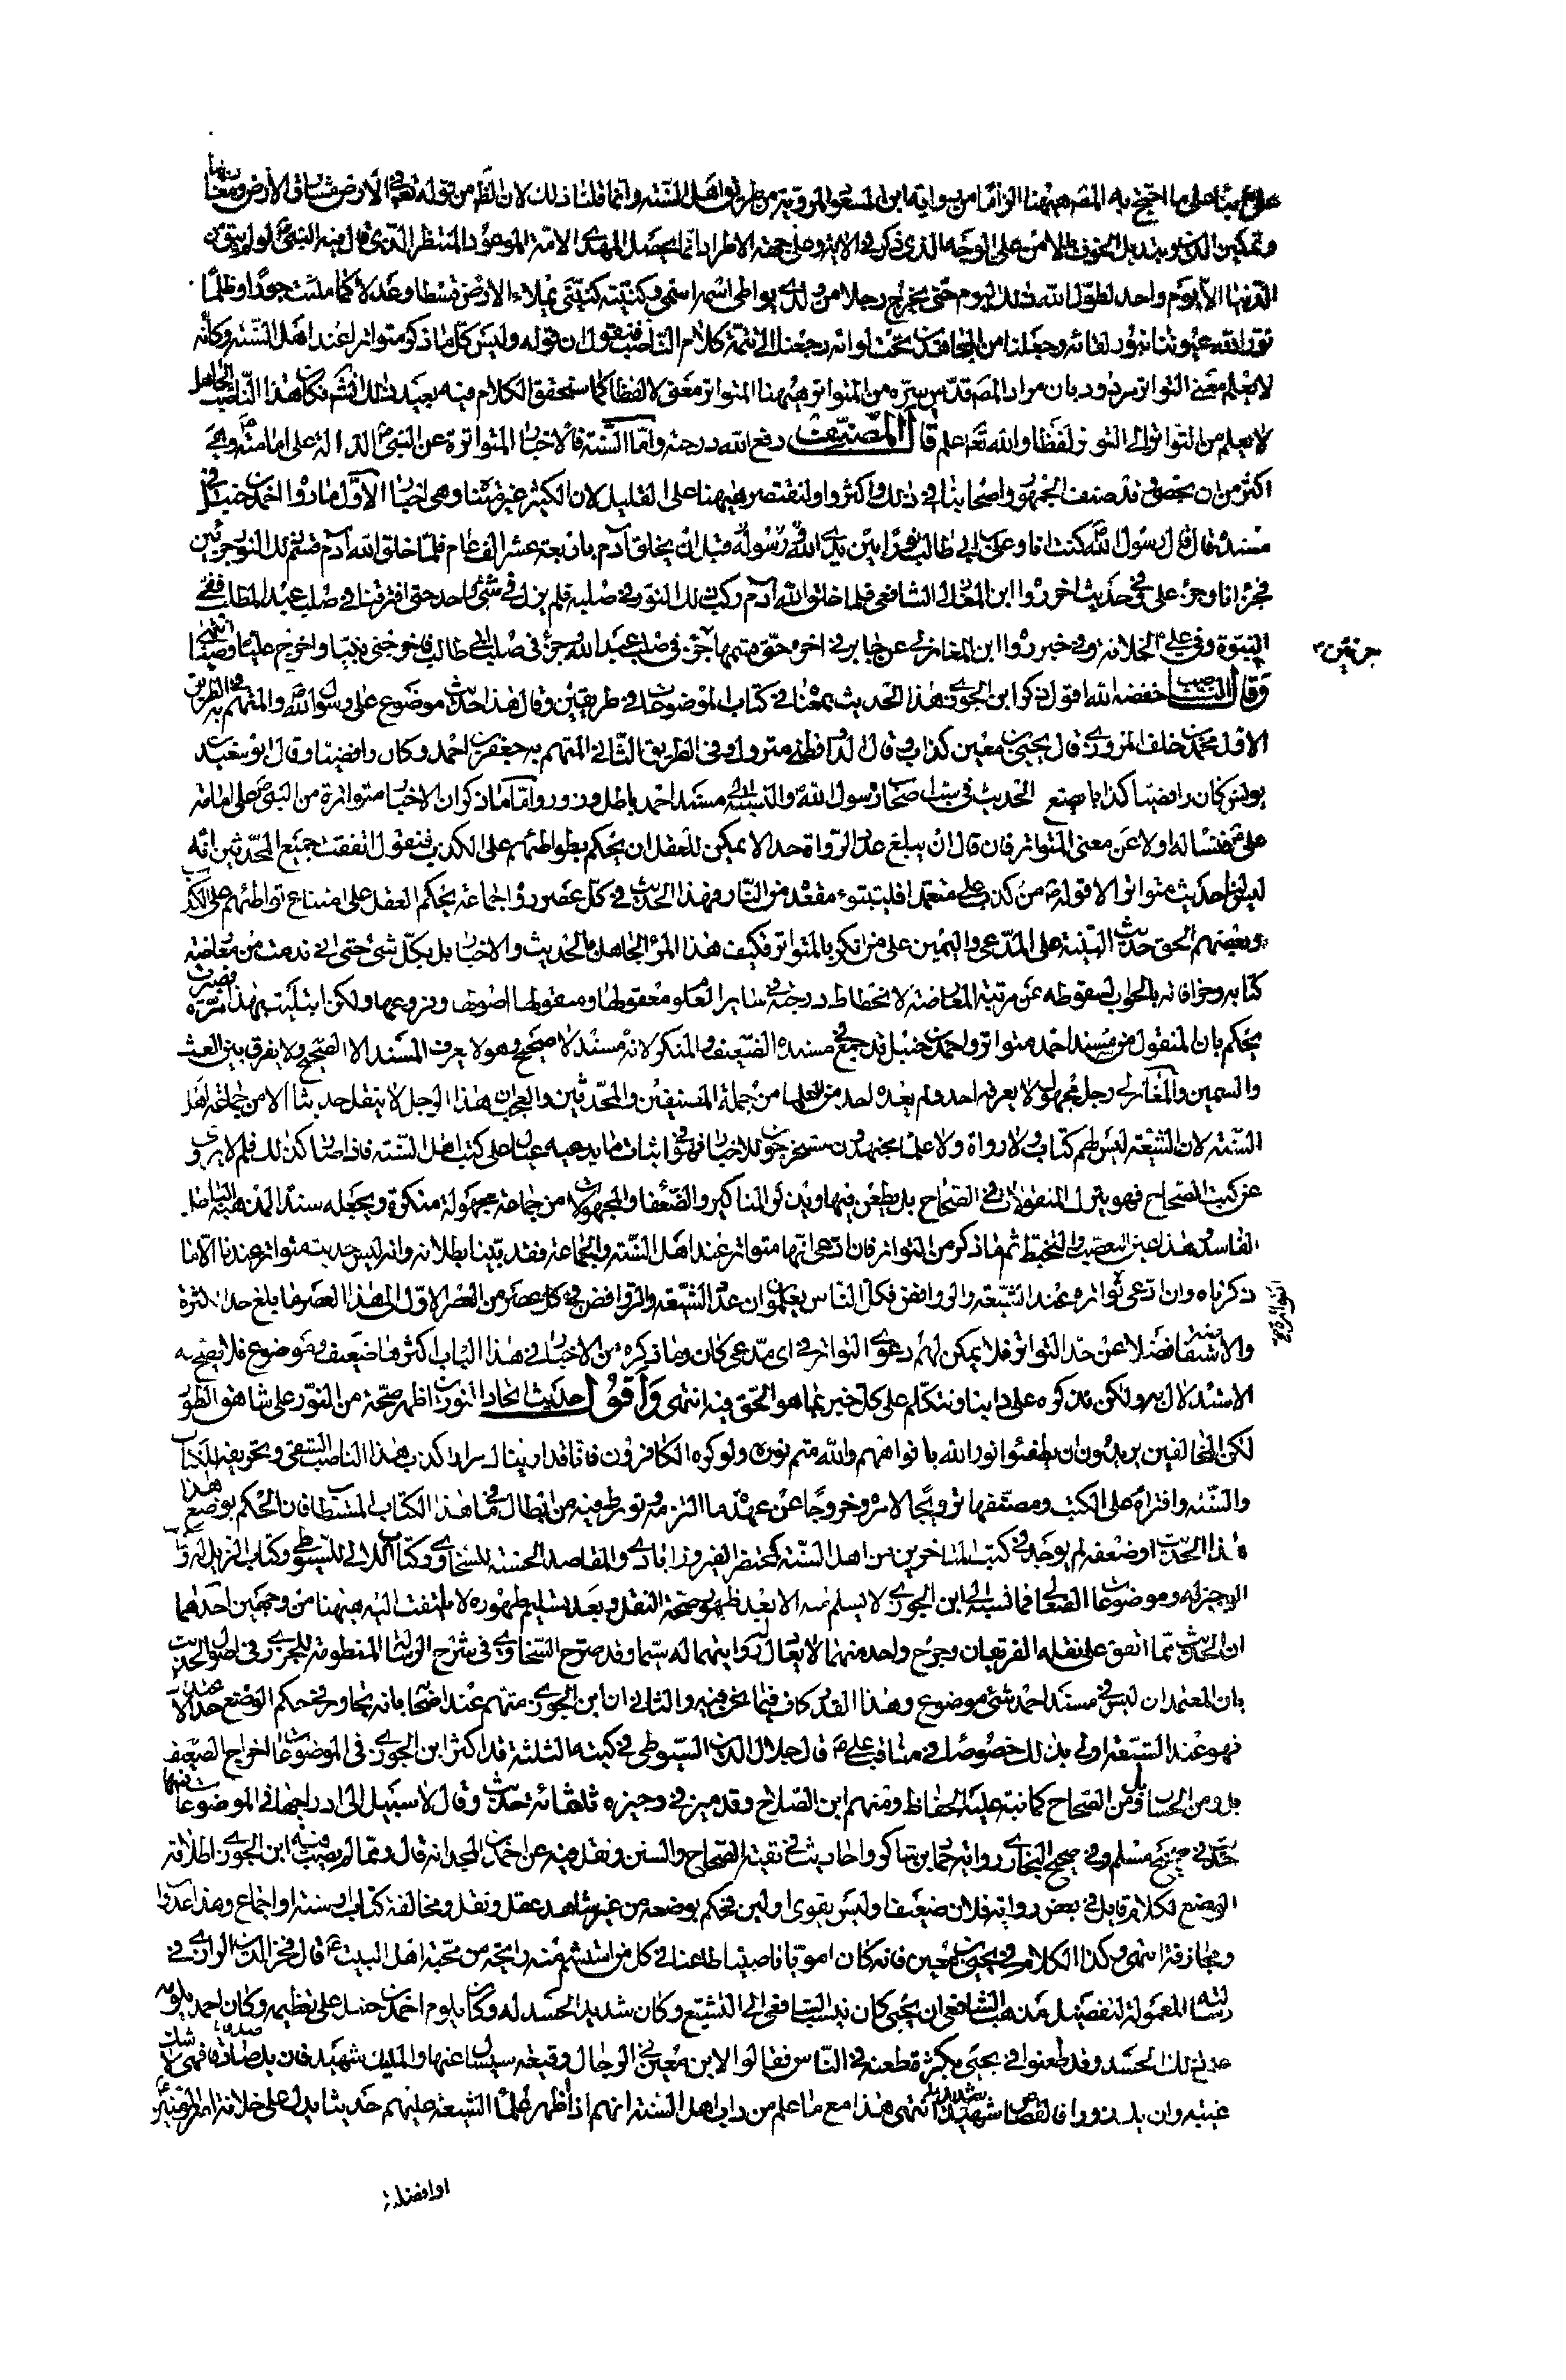 وتمكين الدين وتبديل الخوف بالامن على الوجه الذي ذكر في الاية وعلى جهة الاطراد انما يحصل بالمهدي الامة الموعود المنتظر الذي قال فيه النبي ص لو لم يبق من
الدنيا الا يوم واحد لطول الله ذلك اليوم حتى يخرج رجلا من ولدي يواطي اسمه اسمي وكنيته كنيتي يملاء الارض قسطا وعدلا كما ملئت جورا وظلما
نور الله عيوننا بنور لقائه وجعلنا من المجاهدين تحت لوائه رجعنا الى تتمة كلام الناصب فنقول ان قوله وليس كل ما ذكر متواترا عند اهل السنة وكانه
لا يعلم معنى التواتر مردود بان مراد المص قدس سره من المتواتر هيهنا المتواتر معنى لا لفظا كما سنحقق الكلام فيه بعيد ذلك فكان هذا الناصب الجاهل
لا يعلم من التواتر الا التواتر لفظا والله تعا اعلم قال المصنف رفع الله درجته واما السنة فالاخبار المتواترة عن النبي ص الدالة على امامته وهي
اكثر من ان تحصى وقد صنف الجمهور واصحابنا في ذلك واكثروا ولنقتصر هيهنا على القليل لان الكثير غير متناه وهي اخبار الاول ما رواه احمد بن حنبل في
مسنده قال قال رسول الله ص كنت انا وعلي بن ابي طالب نورا بين يدي الله قبل ان يخلق آدم باربعة عشر الف عام فلما خلق الله آدم قسم ذلك النور جزئين
فجزء انا وجزء علي وفي حديث اخر رواه ابن المغازلي الشافعي فلما خلق الله آدم ركب ذلك النور في صلبه فلم يزل في شئ واحد حتى افترقنا في صلب عبد المطلب ففي
النبوة وفي علي الخلافة وفي خبر رواه ابن المغازلي عن جابر في اخره حتى قسمها جزئين جزء في صلب عبد الله وجزء في صلب ابي طالب فاخرجني نبيا واخرج عليا وصيا انتهى
جزئين
وقال الناصب خفضه الله اقول ذكر ابن الجوزي هذا الحديث بمعناه في كتاب الموضوعات في طريقين وقال هذا حديث موضوع على رسول الله ص والمتهم به في الطريق
الاول محمد بن خلف المروزي قال يحيى بن معين كذاب وقال الدارقطني متروك وفي الطريق الثاني المتهم به جعفر بن احمد وكان رافضيا وقال ابو سعيد
بن يونس كان رافضيا كذابا يضع الحديث في سب اصحاب رسول الله ص والنسبة الى مسند احمد باطل وزور واما ما ذكر ان الاخبار متواترة من النبي ص على امامة
علي فنسأله اولا عن معنى المتواتر فان قال ان يبلغ عدد الرواة حدا لا يمكن للعقل ان يحكم بطواطئهم على الكذب فنقول اتفقت جميع المحدثين انه
ليس لنا حديث متواتر الا قوله ص من كذب علي متعمدا فليتبوء مقعده من النار فهذا الحديث في كل عصر رواه جماعة يحكم العقل على امتناع تواطئهم على الكذب
وبعضهم الحق حديث البينة على المدعي واليمين على من انكر بالمتواتر فكيف هذا المرء الجاهل بالحديث والاخبار بل بكل شئ حتى اني ندمت من معارضة
كتابه وخرافاته بالجواب لسقوطه عن مرتبة المعارضة لانحطاط درجته في ساير العلوم معقولها ومنقولها اصولها وفروعها ولكن ابتليت بهذا مرة فصبرت
يحكم بان المنقول من مسند احمد متواتر واحمد بن حنبل قد جمع في مسنده الضعيف والمنكر لانه مسند لا صحيح وهو لا يعرف المسند الا الصحيح ولا يفرق بين الغث
والسمين والمغازلي رجل مجهول لا يعرفه احد ولم يعده احد من العلماء من جملة المصنفين والمحدثين والعجب ان هذا الرجل لا ينقل حديثا الا من جماعة اهل
السنة لان الشيعة ليس لهم كتاب ولا رواة ولا علماء مجتهدون مستخرجون للاخبار فهو في اثبات ما يدعيه عيال على كتب اهل السنة فاذا صار كذلك فلم لا يروي
عن كتب الصحاح فهو يترك المنقولات في الصحاح بل يطعن فيها ويذكر المناكير والضعفاء والمجهولات من جماعة مجهولة منكرة ويجعله سندا لمذهبه الباطل
الفاسد هذا عين التعصب والتخبط ثم ما ذكر من التواتر فان ادعى انها متواتر عند اهل السنة والجماعة فقد بينا بطلانه وانه ليس حديث متواتر عندنا الا ما
ذكرناه وان ادعى تواتره عند الشيعة والروافض فكل الناس يعلمون ان عدد الشيعة والروافض في كل عصر من العصر الاول الى هذا العصر ما بلغ حد الكثرة
والاستفاضة فضلا عن حد التواتر فلا يمكن لهم دعوى التواتر في اي مدعى كان وما ذكره من الاخبار في هذا الباب اكثرها ضعيف وموضوع فلا يصح به
الاستدلال به ولكن نذكره على دابنا ونتكلم على كل خبر بما هو الحق فيه انتهى واقول حديث اتحاد النورين اظهر صحة من النور على شاهق الطور
لكن المخالفين يريدون ان يطفئوا نور الله بافواههم والله متم نوره ولو كره الكافرون فانا قد ارينا مرارا كذب هذا الناصب الشقي وتحريفه للكتاب
والسنة وافترائه على الكتب ومصنفيها ترويجا لامره وخروجا عن عهدة ما التزمه وتورط فيه من ابطال ما في هذا الكتاب المستطاب فان الحكم بوضع هذا
هذا الحديث او ضعفه لم يوجد في كتب المتاخرين من اهل السنة كمختصر الفيروزابادي والمقاصد الحسنة للسخاوي وكتاب اللالي للسيوطي وكتاب الذيل له وكتاب
الوجيز له وموضوعات الصغاني فما نسبه الى ابن الجوزي لا يسلم منه الا بعد ظهور صحة النقل وبعد تسليم ظهوره لا يلتفت اليه هيهنا من وجهين احدهما
ان الحديث مما اتفق على نقله الفريقان وجرح واحد منهما لا يعادل روايتهما له سيما وقد صرح السخاوي في شرح الرسالة المنظومة للجزري في اصول الحديث
بان المعتمد ان ليس في مسند احمد شئ موضوع وهذا القدر كاف فيما نحن فيه والثاني ان ابن الجوزي متهم عند اصحابه بانه تجاوز في حكم الوضع عن حده
فهو عند الشيعة اولى بذلك خصوصا في مناقب علي ع قال جلال الدين السيوطي في كتبه الثلثة قد اكثر ابن الجوزي في الموضوعات اخراج الضعيف
بل ومن الحسان بل ومن الصحاح كما نبه عليه الحفاظ ومنهم ابن الصلاح وقد ميز في وجيزه ثلثمائة حديث وقال لا سبيل الى ادراجها في الموضوعات فمنها
حديث في صحيح مسلم وفي صحيح البخاري رواية حماد بن شاكر واحاديث في بقية الصحاح والسنن ونقل فيه عن احمد بن ابي المجد انه قال ومما لم يصب فيه ابن الجوزي اطلاقه
الوضع لكلام قايل في بعض رواته فلان ضعيف او ليس بقوي او لين فحكم بوضعه من غير شاهد عقل ونقل ومخالفة كتاب وسنة او اجماع وهذا عدوان
ومجازفة انتهى وكذا الكلام في يحيى بن معين فانه كان امويا ناصبيا طاعنا في كل من استشم منه رايحة من محبة اهل البيت ع قال فخر الدين الرازي في
رسالته المعمولة لتفضيل مذهب الشافعي ان يحيى كان ينسب الشافعي الى التشيع وكان شديد الحسد له وكان يلوم احمد بن حنبل على تعظيمه وكان احمد يلومه
على ذلك الحسد وقد طعنوا في يحيى بكثرة طعنه في الناس فقالوا لابن معين في الرجال وقيعة سيسأل عنها والمليك شهيد فان يك صادقا فهي لا شك
غيبة وان يك زورا فالقصاص شديد انتهى هذا مع ما علم من داب اهل السنة انهم اذا ظهر علماء الشيعة عليهم حديثا يدل على خلافة امير المؤمنين
او افضليته